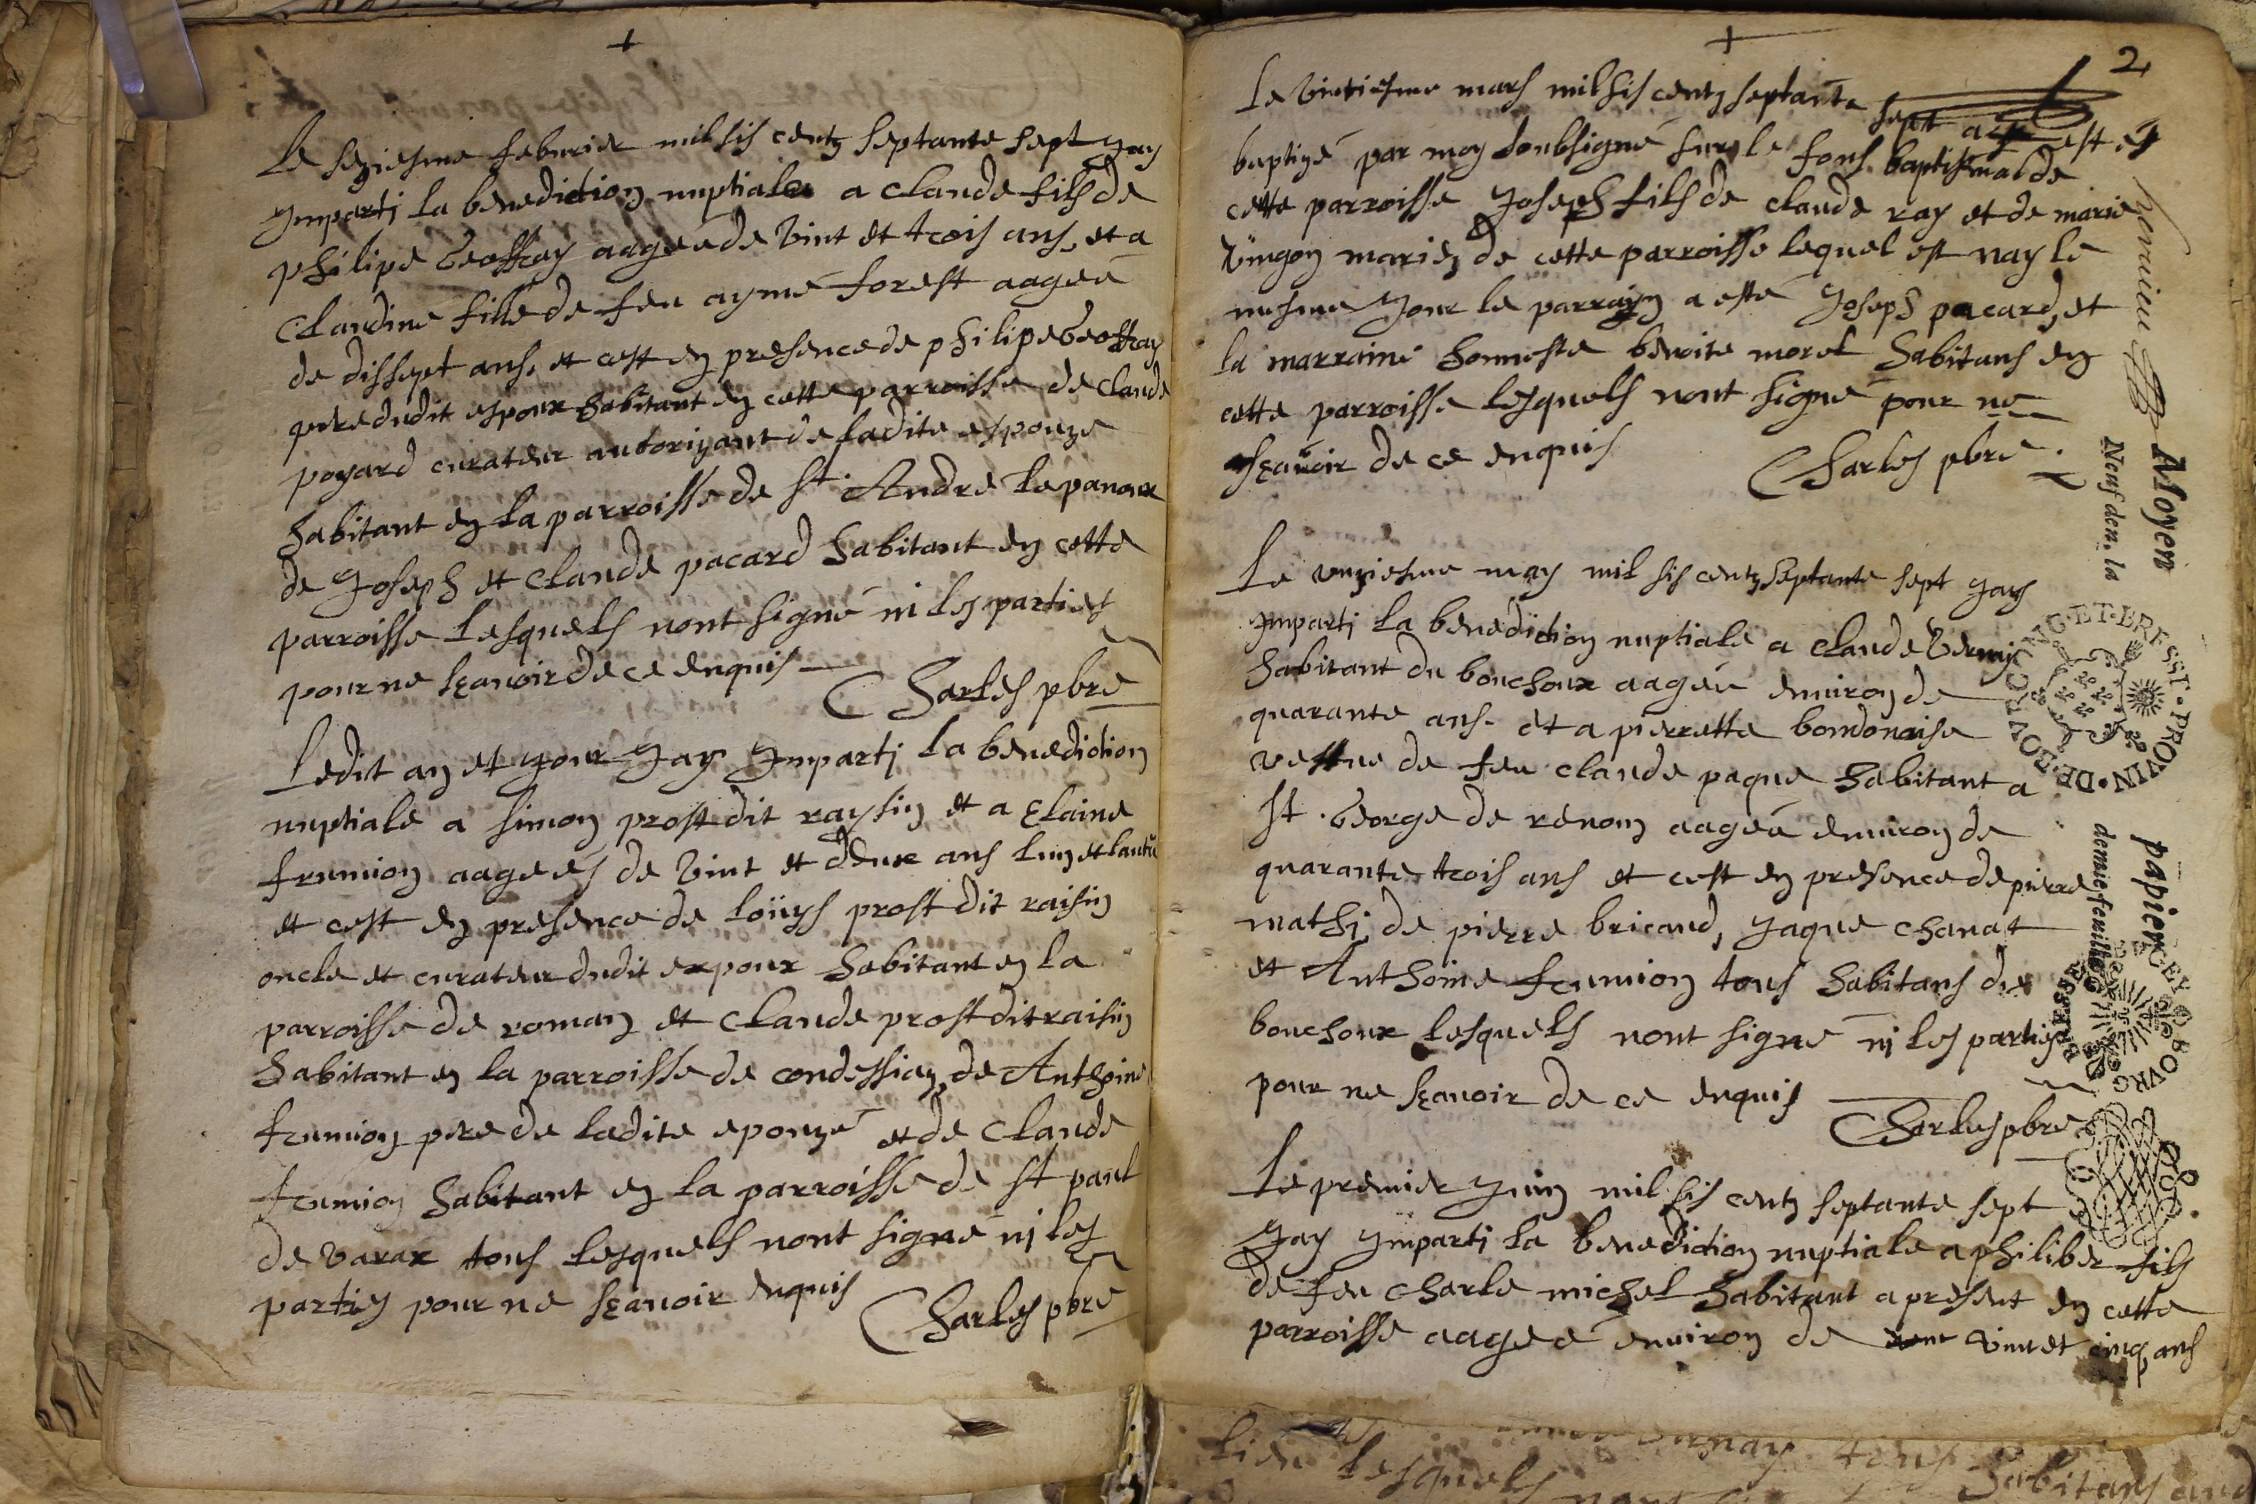 Le seziesme febvrier mil sis centz septante sept Jay
Imparti la benediction nuptiale a Claude fils de
philipe Geoffray aageé de vint et trois ans, et a
Claudine fille de feu aymé forest aageé
de dissept ans, et cest en presence de philipe Geoffray
pere dudit espoux habitant en cette parroisse de Claude
poyard curateur authorizant de ladite espouze
habitant en la parroisse de St. André le panoux
de Joseph et Claude pacard habitant en cette
parroisse lesquels nont signé ni les parties
pour ne sçavoir de ce enquis
Charles pbre
Ledit an et jour Jay Imparti la benediction
nuptiale a Simon prost dit raysin et a Elaine
frumion aageés de vint et deux ans lun et lautre
et cest en presence de loüys prost dit raisin
oncle et curateur dudit expoux habitant en la
parroisse de roman et Claude prost dit raisin
habitant en la parroisse de condessian, de Anthoine
frumion pere de ladite epouzé et de Claude
frumion habitant en la parroisse de St paul
de varax tous lesquels nont signé ni les
parties pour ne sçavoir enquis
Charles pbre
2
Le vintiesme mars mil sis centz septante sept a esté
baptizé par moy soubsigné sur le fons baptismal de
cette parroisse Joseph fils de Claude ray et de marie
mariez de cette parroisse lequel est nay le
mesme Jour le parrayn a esté Joseph pacard, et
la marraine honneste benoite morel habitans en
cette parroisse lesquels nont signé pour ne
sçavoir de ce enquis
Charles pbre
Le unziesme may mil sis centz septante sept Jay
Imparti la benediction nuptiale a Claude Vernay
habitant du bouchoux aageé environ de
quarante ans. et a pierrette bondonaise
veffue de feu Claude paque habitant a
St. George de renon aageé environ de
quarante trois ans et cest en presence de pierre
mathi, de pierre bricaud, Jaque Chanat
et Anthoine frumion tous habitans du
bouchoux lesquels nont signé ni les parties
pour ne sçavoir de ce enquis
Charles pbre
Le premier Juin mil sis centz septante sept
Jay Imparti la benediction nuptiale a philiber fils
de feu Charle michel habitant a present en cette
parroisse aageé environ de vint et cinq ans
Moyen
Neuf den. la
papier
demie feuille
PROVIN. DE. BOURGONG. ET. BRESSE.
lesquels
habitans